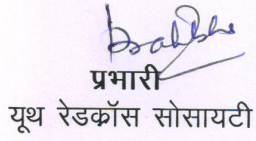 प्रभारी
यूथ रेडक्रॉस सोसायटी